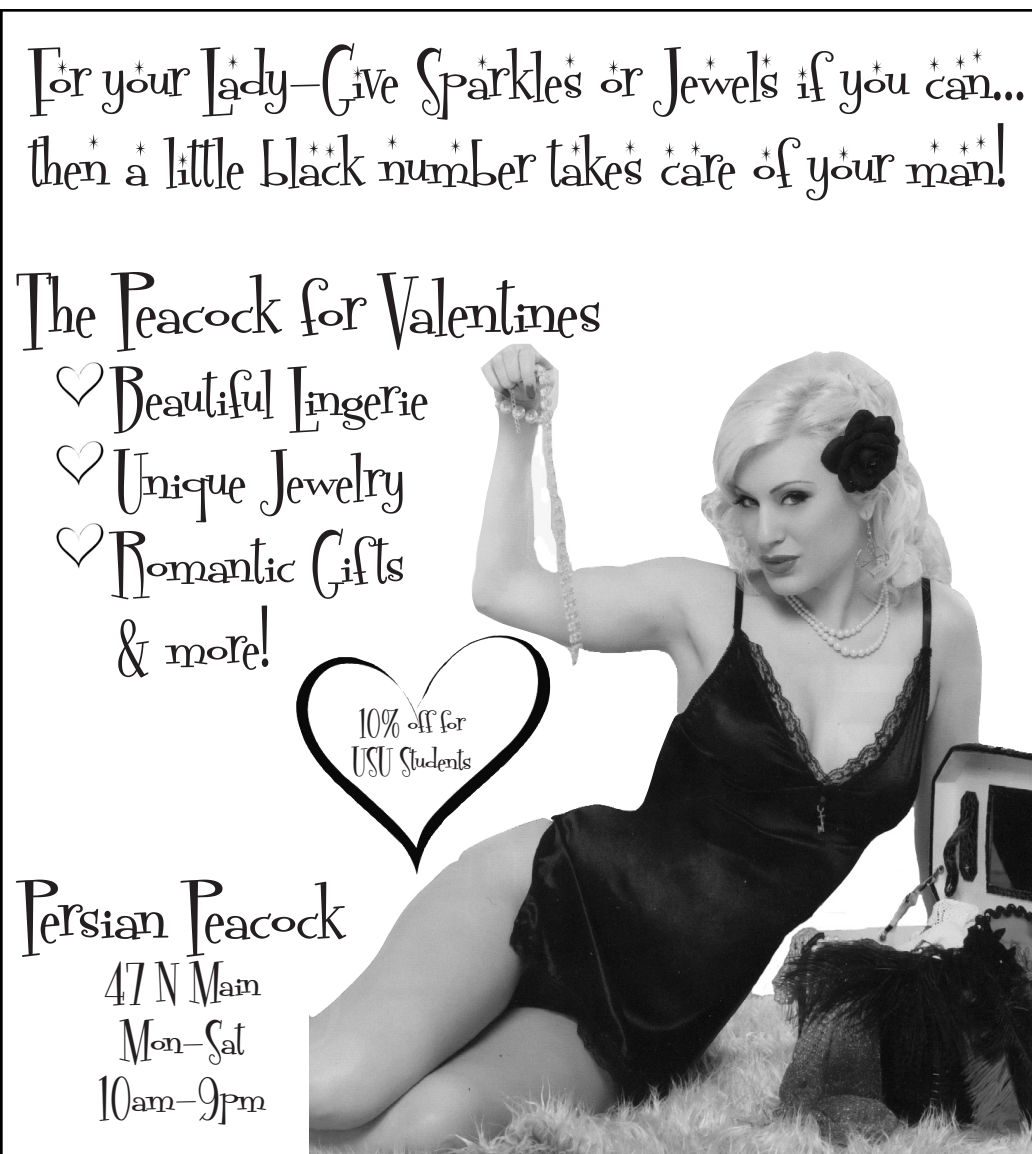 For your Lady–Give Sparkles or Jewels if you can...
then a little black number takes care of your man!
The Peacock for Valentines
Beautiful Lingerie
Unique Jewelry
Romantic Gifts
& more!
10% off for
USU Students
Persian Peacock
47 N Main
Mon–Sat
10am–9pm